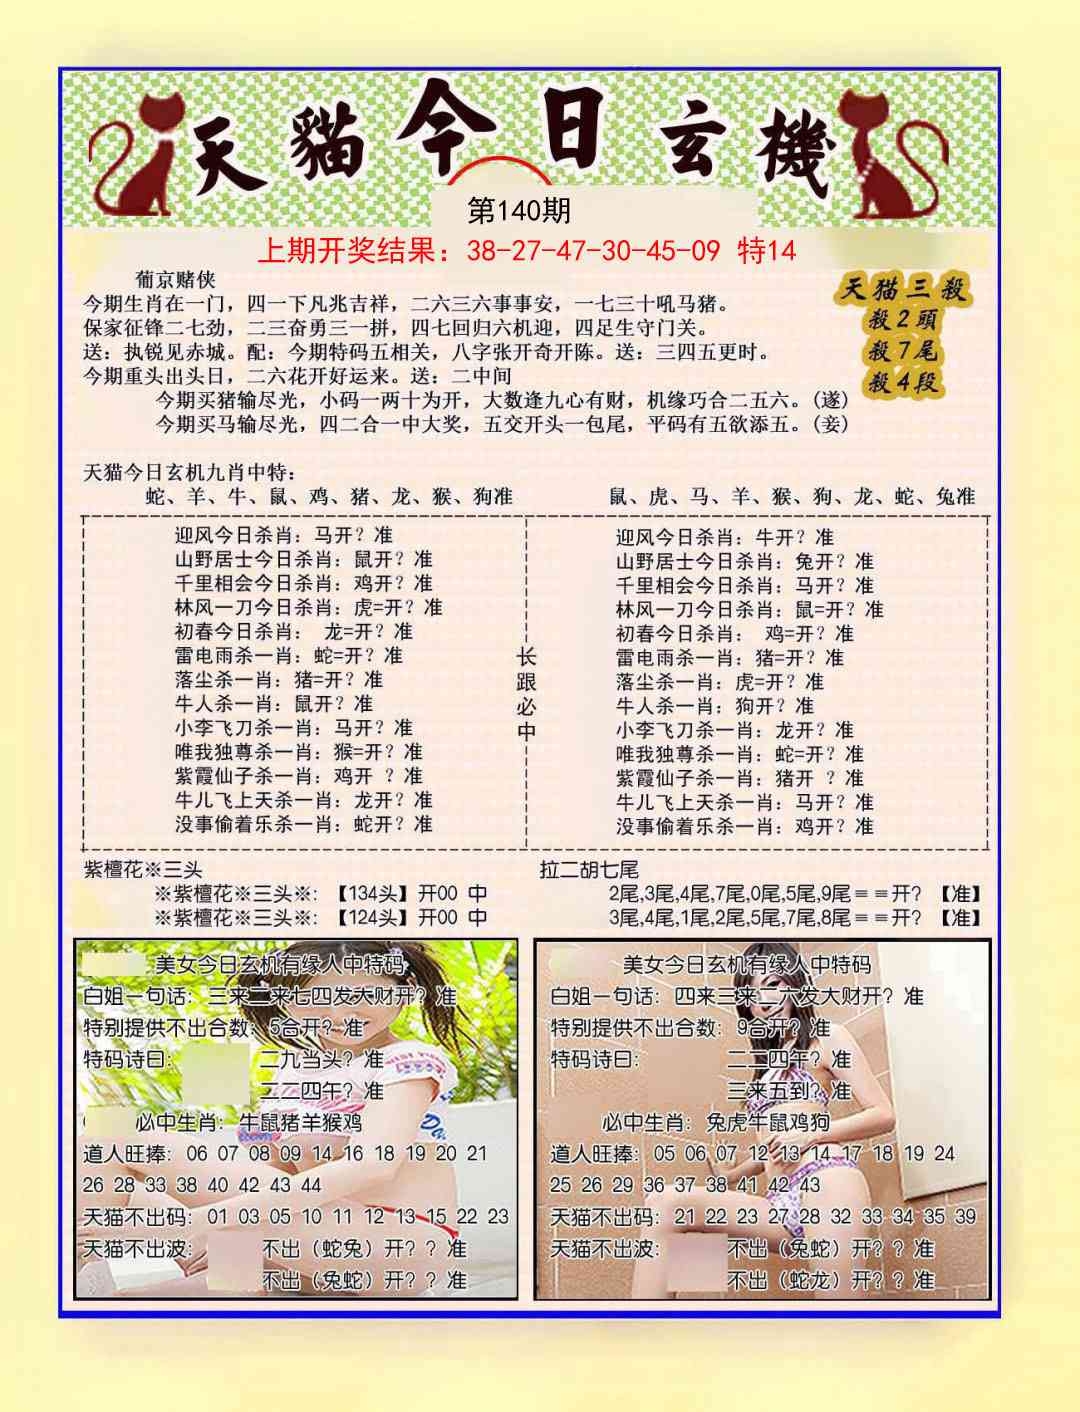 天貓今日玄機
第140期
上期开奖结果：38-27-47-30-45-09 特14
葡京赌侠
今期生肖在一门，四一下凡兆吉祥，二六三六事事安，一七三十吼马猪。
保家征锋二七劲，二三奋勇三一拼，四七回归六机迎，四足生守门关。
送：执锐见赤城。配：今期特码五相关，八字张开奇开陈。送：三四五更时。
今期重头出头日，二六花开好运来。送：二中间
今期买猪输尽光，小码一两十为开，大数逢九心有财，机缘巧合二五六。(遂)
今期买马输尽光，四二合一中大奖，五交开头一包尾，平码有五欲添五。(妾)
天猫三殺
殺2頭
殺7尾
殺4段
天猫今日玄机九肖中特：
蛇、羊、牛、鼠、鸡、猪、龙、猴、狗准
鼠、虎、马、羊、猴、狗、龙、蛇、兔准
迎风今日杀肖：马开？准
山野居士今日杀肖：鼠开？准
千里相会今日杀肖：鸡开？准
林风一刀今日杀肖：虎=开？准
初春今日杀肖： 龙=开？准
雷电雨杀一肖：蛇=开？准
落尘杀一肖：猪=开？准
牛人杀一肖：鼠开？准
小李飞刀杀一肖：马开？准
唯我独尊杀一肖：猴=开？准
紫霞仙子杀一肖：鸡开 ？准
牛儿飞上天杀一肖：龙开？准
没事偷着乐杀一肖：蛇开？准
长
跟
必
中
迎风今日杀肖：牛开？准
山野居士今日杀肖：兔开？准
千里相会今日杀肖：马开？准
林风一刀今日杀肖：鼠=开？准
初春今日杀肖： 鸡=开？准
雷电雨杀一肖：猪=开？准
落尘杀一肖：虎=开？准
牛人杀一肖：狗开？准
小李飞刀杀一肖：龙开？准
唯我独尊杀一肖：蛇=开？准
紫霞仙子杀一肖：猪开 ？准
牛儿飞上天杀一肖：马开？准
没事偷着乐杀一肖：鸡开？准
紫檀花※三头
※紫檀花※三头※：【134头】开00 中
※紫檀花※三头※：【124头】开00 中
拉二胡七尾
2尾,3尾,4尾,7尾,0尾,5尾,9尾==开？【准】
3尾,4尾,1尾,2尾,5尾,7尾,8尾==开？【准】
美女今日玄机有缘人中特码
白姐一句话：三来二来七四发大财开？准
特别提供不出合数：5合开？准
特码诗曰： 二九当头？准
二二四午？准
必中生肖：牛鼠猪羊猴鸡
道人旺捧：06 07 08 09 14 16 18 19 20 21
26 28 33 38 40 42 43 44
天猫不出码：01 03 05 10 11 12 13 15 22 23
天猫不出波： 不出（蛇兔）开？？准
不出（兔蛇）开？？准
美女今日玄机有缘人中特码
白姐一句话：四来三来二六发大财开？准
特别提供不出合数：9合开？准
特码诗曰： 二二四午？准
三来五到？准
必中生肖：兔虎牛鼠鸡狗
道人旺捧：05 06 07 12 13 14 17 18 19 24
25 26 29 36 37 38 41 42 43
天猫不出码：21 22 23 27 28 32 33 34 35 39
天猫不出波： 不出（兔蛇）开？？准
不出（蛇龙）开？？准